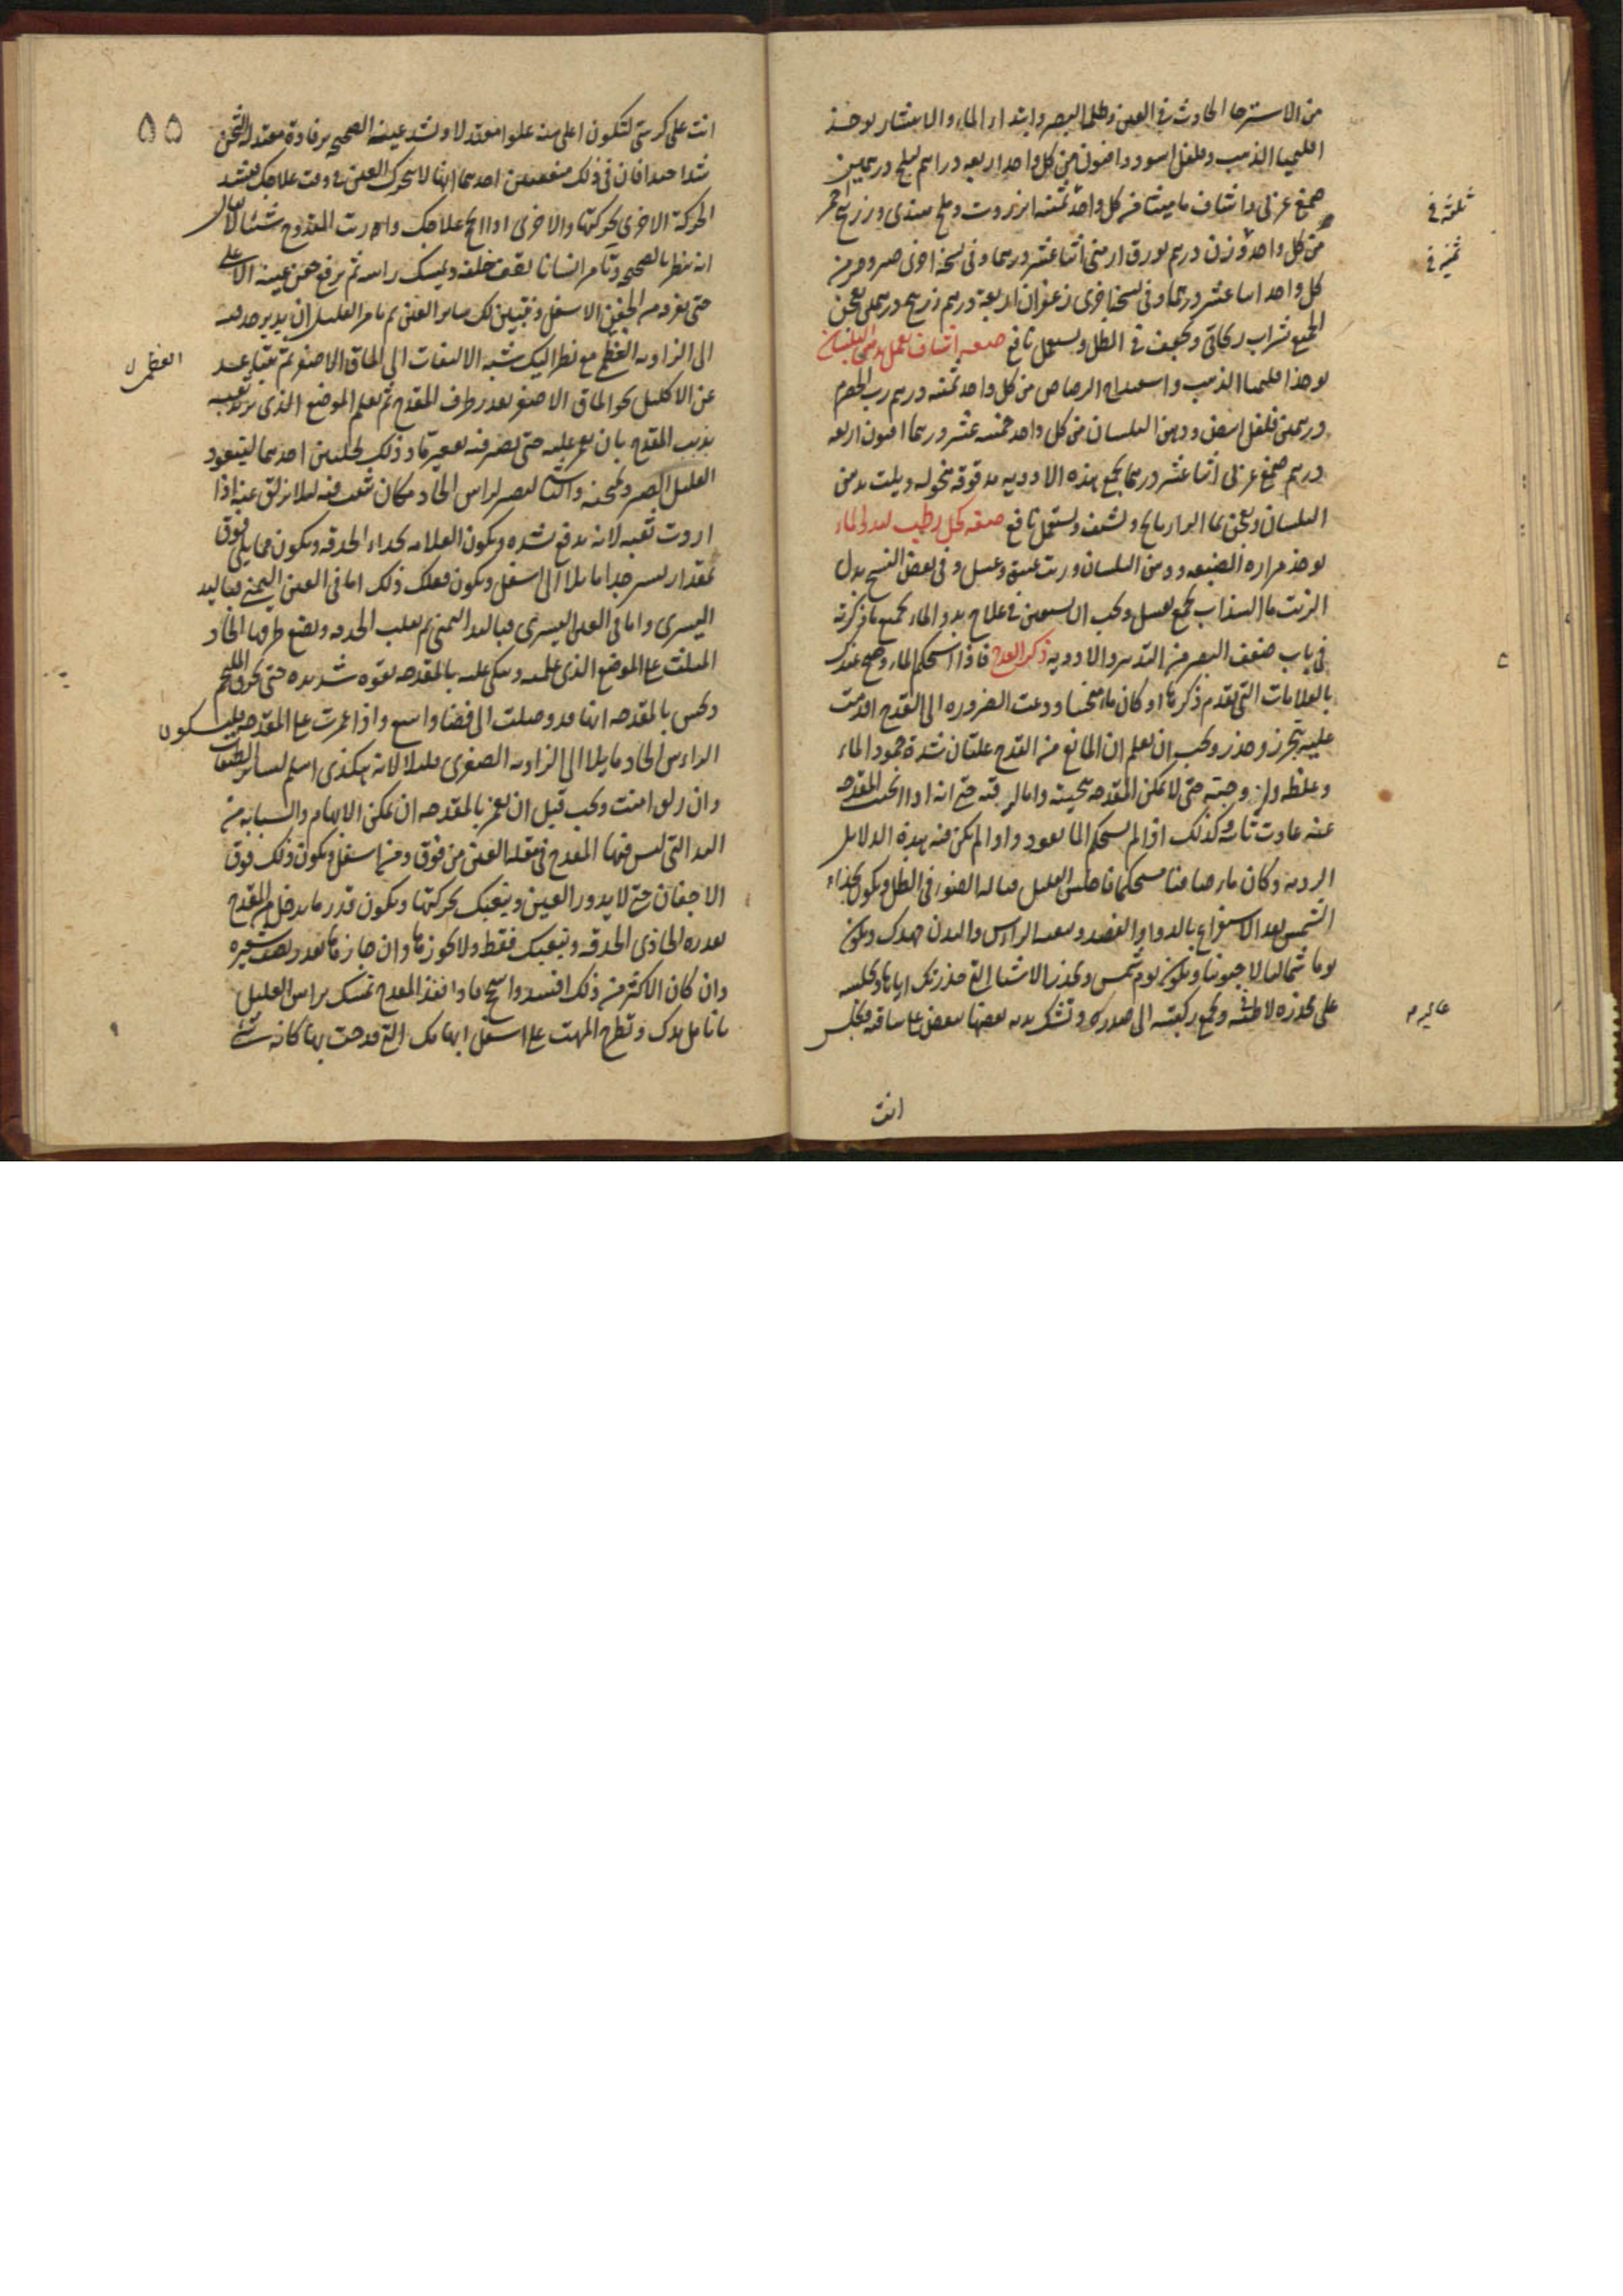 من الاسترخا الحادث في العين وظلمة البصر وابتداء الماء والانتشار يوخذ
اقليميا الذهب وفلفل اسود وافيون من كل واحد اربعه دراهم بليلج درهمين
صمغ عربي واشياف ماميثا من كل واحد ثمنيه انزروت وملح هندي وزرنيخ احمر
من كل واحد وزن درهم بورق ارمني اثنا عشر درهما وفي نسخة اخرى صبر ومر من
كل واحد اثنا عشر درهما وفي نسخة اخرى زعفران اربعة درهم زرنيخ درهمين يعجن
الجميع بشراب ريحاني ويجفف في الظل ويستعمل نافع صفه اشياف يعمل بدهن البلسان
يوخذ اقليميا الذهب واسفيداج الرصاص من كل واحد ثمنيه درهم رب الحصرم
درهمين فلفل ابيض ودهن البلسان من كل واحد خمسه عشر درهما افيون اربعه
درهم صمغ عربي اثنا عشر درهما يجمع هذه الادويه مدقوقه منخوله ويلت بدهن
البلسان ويعجن بماء الرازيانج ويشيف ويستعمل نافع صفه كحل رطب لبدو الماء
يوخذ مراره الضبعه ودهن البلسان وزيت عتيق وعسل وفي بعض النسخ بدل
الزيت ماء السذاب يجمع بعسل ويجب ان يستعمل في علاج بدو الماء بجميع ما ذكرته
في باب ضعف البصر من التدبير والادويه ذكر القدح فاذا استحكم الماء وصح عندك
بالعلامات التي تقدم ذكرها او كان ما منجسا ودعت الضروره الى القدح اقدمت
عليه بتحرز وحذر ويجب ان تعلم ان المانع من القدح علتان شدة جمود الماء
وغلظه ولزوجته حتى لا يمكن المقدحه تنحيته واما لرقته حتى انه اذا نحته المقدحه
عنه عادت ثانيه وكذلك اذا لم يستحكم الماء يعود واذا لم يكن فيه هذه الدلايل
الرديه وكان ماء صافيا مستحكما فاجلس العليل قباله الضوء في الظل ويكون بحذاء
الشمس بعد الاستفراغ بالدواء والفصد وتنقيه الراس والبدن جهدك ويكون
يوما شماليا لا جنوبيا ويكون يوم شمس ويحذر الاشياء التي حذرتك اياها وتجلسه
على مخده لاطئه ويجمع ركبتيه الى صدره وتشبك يديه بعضها ببعض على ساقه وتجلس
انت
ثلثه في
ثمنيه في
٥٥
انت على كرسي لتكون اعلى منه علوا معتدلا وتشد عينه الصحيحه برفادة معتدلة الثخن
شدا جيدا فان في ذلك منفعتين احدهما انها لا تتحرك العين في وقت علاجك بعينه
الحركة الاخرى بحركتها والاخرى اذا نجح علاجك واريت المقدوح شيئا لا يقال
انه ينظر بالصحيحه وتامر انسانا يقف خلفه ويمسك راسه ثم ترفع جفن عينه الاعلى
حتى تفرده من الجفن الاسفل وتتبين لك ساير العين ثم تامر العليل ان يدير حدقته
الى الزاويه العظمى مع نظر اليك شبه الالتفات الى الماق الاصغر ثم تتباعد
عن الاكليل نحو الماق الاصغر بقدر طرف المقدح ثم تعلم الموضع الذي تريد ثقبه
بذنب المقدح بان تغمز عليه حتى يصير فيه تقعير ما وذلك لخلتين احدهما ليتعود
العليل الصبر وتمتحنه والثاني ليصير لراس الحاد مكان تثبت فيه ليلا يزلق عنه اذا
اردت ثقبه لانه يدفع بشده ويكون العلامه بحذاء الحدقه ويكون مما يلي فوق
بمقدار يسير جدا مايلا الى اسفل ويكون فعلك ذلك اما في العين اليمنى فباليد
اليسرى واما في العين اليسرى فباليد اليمنى ثم تقلب الحديده وتضع طرفها الحاد
المثلث على الموضع الذي علمته وتتكي عليه بالمقدحه بقوه شديده حتى تخرق الملتحم
وتحس بالمقدحه انها قد وصلت الى فضاء واسع واذا غمزت على المقدحه فليكون
الراس الحاد مايلا الى الزاويه الصغرى قليلا لانه هكذى اسلم لساير الطبقات
وان زلق امنت ويجب قبل ان تغمز بالمقدحه ان تمكن الابهام والسبابه من
اليد التي ليس فيها المقدح في مقله العين من فوق ومن اسفل ويكون ذلك فوق
الاجفان حتى لا يدور العين ويتعبك بحركتها ويكون قدر ما يدخل من المقدح
بقدره الحاذي الحدقه وبتعبك فقط ولا تجوزها وان جازها فقدر نصف شعيره
وان كان الاكثر من ذلك افسد واسمج فاذا نفذ المقدح تمسك براس العليل
بانامل يدك وتطرح المهت على اسفل ابهامك التي قدحت بها كانه شي
العظمى